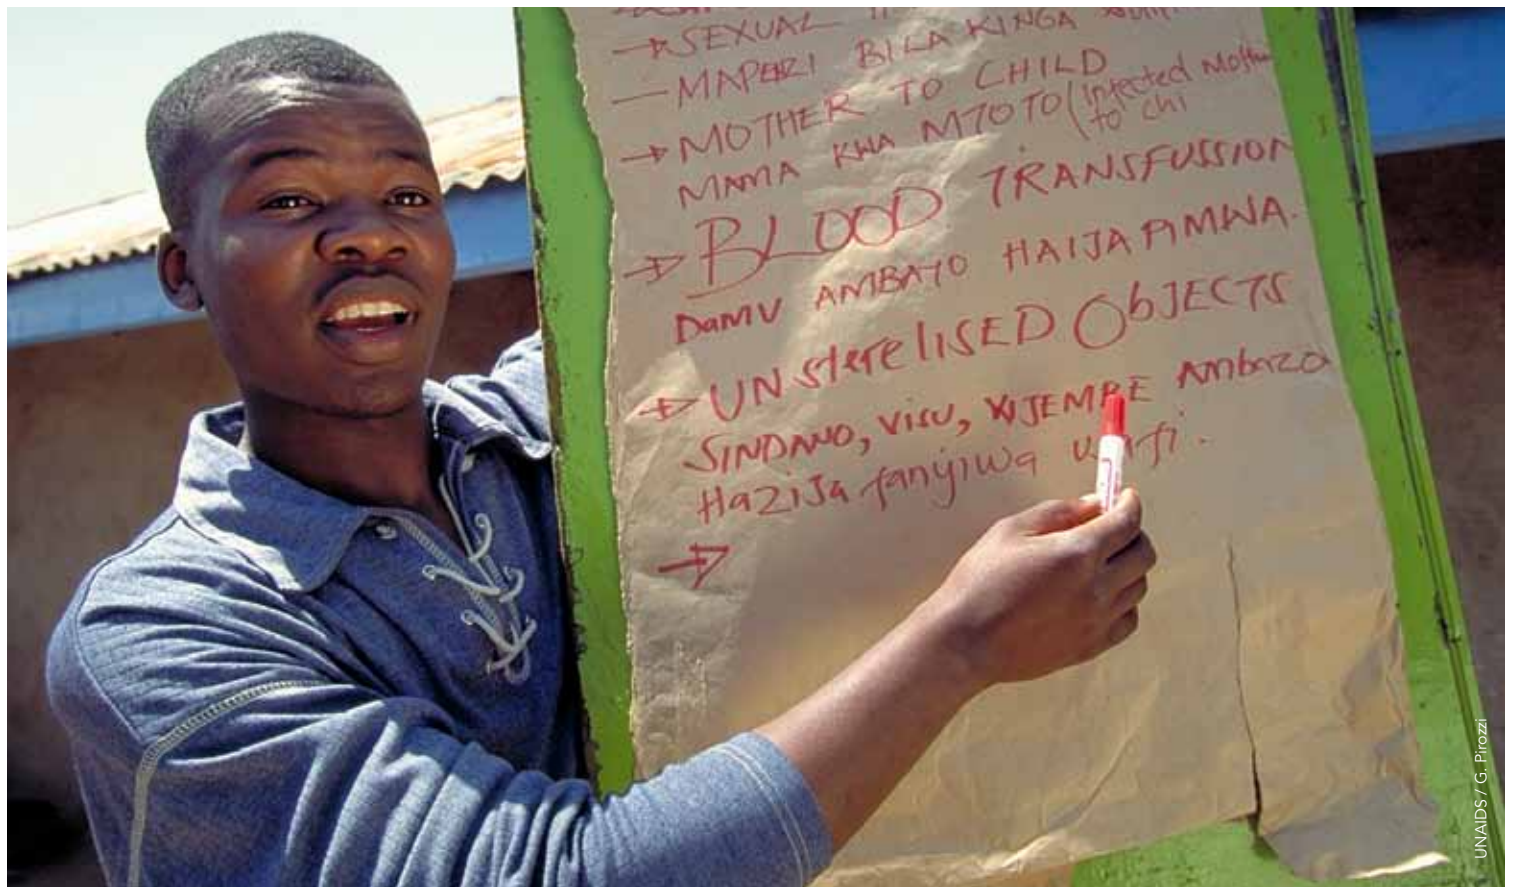 → SEXUAL
— MAPENZI BILA KINGA
→ MOTHER TO CHILD
MAMA KWA MTOTO (infected Moth
to chi
→ BLOOD TRANSFUSSION
DAMU AMBAYO HAIJAPIMWA.
→ UNsterelISED ObJECTS
SINDANO, Visu, WJEMBE Ambazo
HaziJa fanyiwa
→
UNAIDS / G. Pirozzi